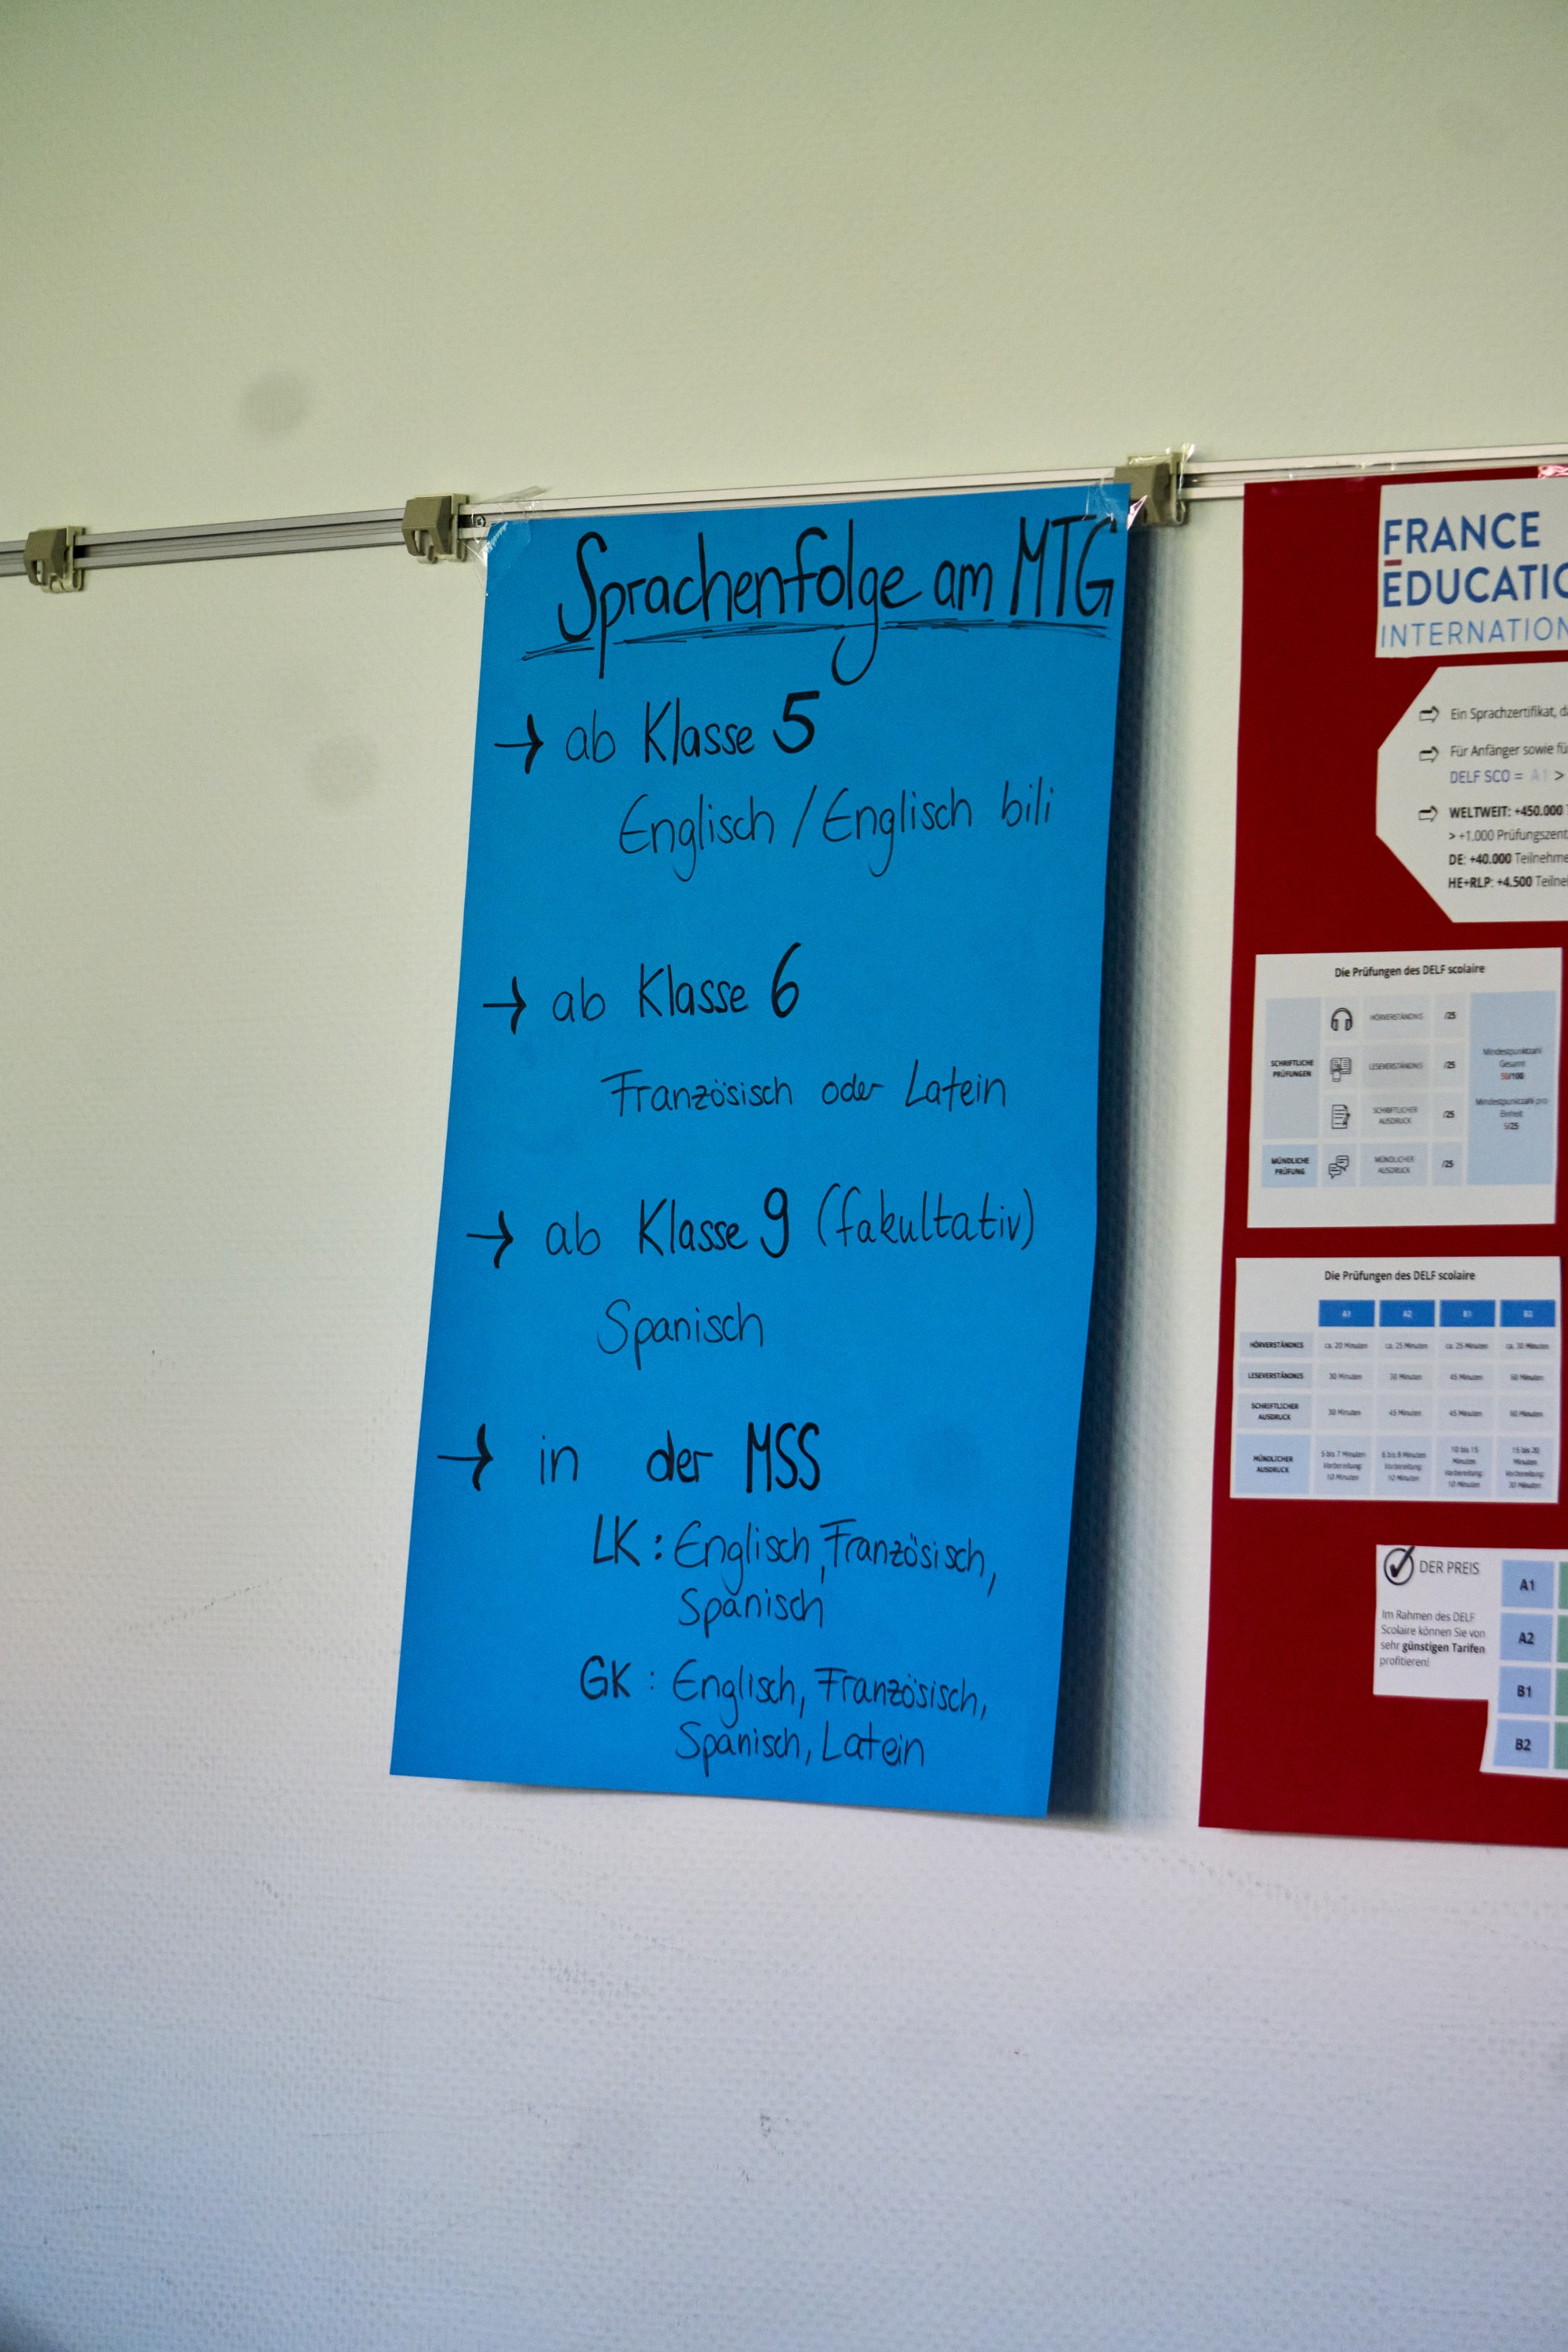 Sprachenfolge am MTG
→ ab Klasse 5
Englisch / Englisch bili
→ ab Klasse 6
Französisch oder Latein
→ ab Klasse 9 (fakultativ)
Spanisch
→ in der MSS
LK: Englisch, Französisch,
Spanisch
GK: Englisch, Französisch,
Spanisch, Latein
FRANCE
ÉDUCATIO
INTERNATION
Ein Sprachzertifikat, d
Für Anfänger sowie fü
DELF SCO = A1 >
WELTWEIT: +450.000
> +1.000 Prüfungszent
DE: +40.000 Teilnehme
HE+RLP: +4.500 Teilne
Die Prüfungen des DELF scolaire
SCHRIFTLICHE
PRÜFUNGEN
HÖRVERSTÄNDNIS /25
LESEVERSTÄNDNIS /25
SCHRIFTLICHER
AUSDRUCK /25
Mindestpunktzahl
Gesamt
50/100
Mindestpunktzahl pro
Einheit
5/25
MÜNDLICHE
PRÜFUNG
MÜNDLICHER
AUSDRUCK /25
Die Prüfungen des DELF scolaire
A1 A2 B1 B2
HÖRVERSTÄNDNIS ca. 20 Minuten ca. 25 Minuten ca. 25 Minuten ca. 30 Minuten
LESEVERSTÄNDNIS 30 Minuten 30 Minuten 45 Minuten 60 Minuten
SCHRIFTLICHER
AUSDRUCK 30 Minuten 45 Minuten 45 Minuten 60 Minuten
MÜNDLICHER
AUSDRUCK
5 bis 7 Minuten
Vorbereitung:
10 Minuten
6 bis 8 Minuten
Vorbereitung:
10 Minuten
10 bis 15
Minuten
Vorbereitung:
10 Minuten
15 bis 20
Minuten
Vorbereitung:
30 Minuten
DER PREIS
Im Rahmen des DELF
Scolaire können Sie von
sehr günstigen Tarifen
profitieren!
A1
A2
B1
B2